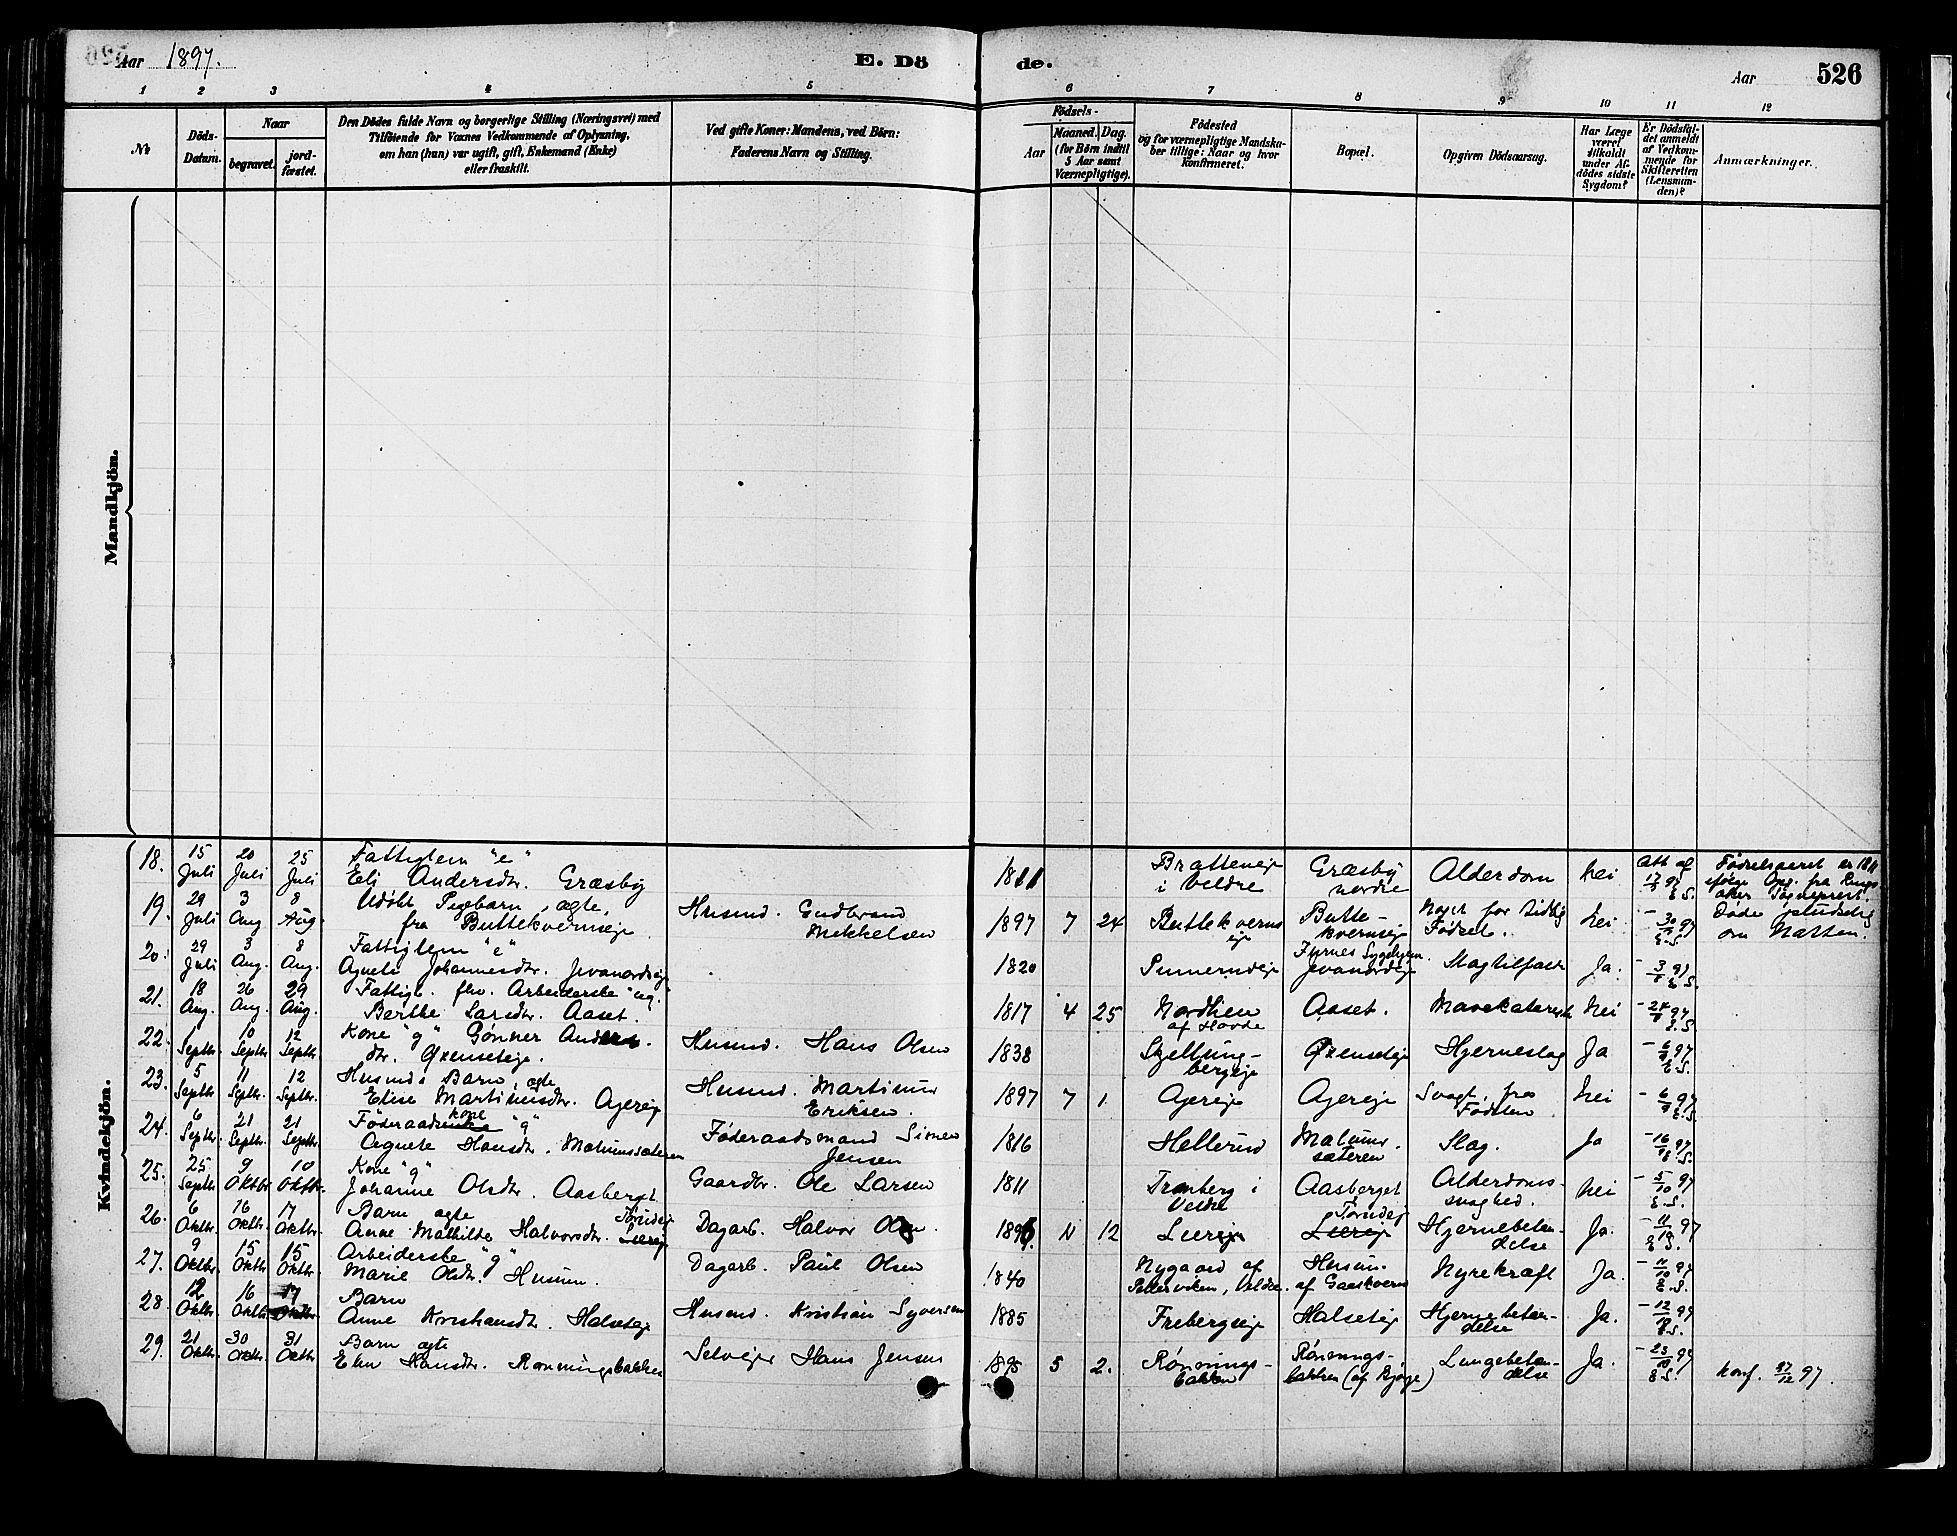 Aar 1897.
E. Dö
de.
Aar
526
1 2 3 4 5 6 7 8 9 10 11 12
№
Döds-
Datum.
Naar
begravet.
jord-
fæstet.
Den Dödes fulde Navn og borgerlige Stilling (Næringsvei) med
Tilföiende for Voxnes Vedkommende af Oplysning,
om han (hun) var ugift, gift, Enkemand (Enke)
eller fraskilt.
Ved gifte Koner: Mandens, ved Börn:
Faderens Navn og Stilling.
Födsels-
Aar
Maaned. Dag.
(for Börn indtil
5 Aar samt
Værnepligtige).
Födested
og for værnepligtige Mandska-
ber tillige: Naar og hvor
konfirmeret.
Bopæl.
Opgiven Dödsaarsag.
Har Læge
været
tilkaldt
under Af-
dödes sidste
Sygdom?
Er Dödsfal-
det anmeldt
af Vedkom-
mende for
Skifteretten
(Lensman-
den)?
Anmærkninger.
Mandkjön.
Kvindekjön.
18. 15 Juli 20 Juli 25 Juli Fattiglem "e"
Eli Andersdtr. Græsby 1811 Bratteneie i Veldre Græsby nordre Alderdom Nei Att af 17/7 97 Fødselsaaret er 1811
19. 29 Juli 3 Aug 8 Aug. Udøbt Pigebarn, ægte,
fra Buttekvernseje Husmd. Gudbrand Mikkelsen 1897 7 24 Buttekvernseje Buttekvernseje Noget for tidlig Fødsel. Nei - 30/7 97 Døde pludselig
om Natten.
20. 29 Juli 3 Aug. 8 Aug. Fattiglem "e"
Agnete Johannesdtr. Jevanordseje 1820 Furnes Sygehjem. Jevanordseje Slagtilfælde Ja.
21. 18 Aug. 26 Aug. 29 Aug. Fattigl. fhv. Arbeiderske "ug."
Berthe Larsdtr. Aaset. 1817 4 25 Nordhen af Hovde Aaset. Mavekatarrh Nei
22. 1 Septbr. 10 Septbr. 12 Septbr. Kone "g" Gønner Anders-
dtr. Øxenseteje. Husmd. Hans Olsen 1838 Skjellungbergeje Øxenseteje Hjerneslag Ja - 6/9 97
23. 5 Septbr. 11 Septbr. 12 Septbr. Husmds Barn, ægte
Elise Martinusdtr. Agereje Husmd. Martinus Eriksen. 1897 7 1. Agereje Agereje Svagt. fra Fødslen Nei - 6/9 97
24. 6 Septbr. 21 Septbr. 21 Septbr. Føderaadsenke kone "g"
Agnete Hansdtr. Malumssæteren Føderaadsmand Simen Jensen 1816 Hellerud Malumssæteren Slag. Ja - 16/9 97
25. 25 Septbr. 9 Oktbr. 10 Oktbr. Kone "g"
Johanne Olsdtr. Aasberget Gaardbr. Ole Larsen 1811 Tronberg i Veldre Aasberget Alderdomssvaghed. Nei - 5/10 97
26. 6 Oktbr. 16 Oktbr. 17 Oktbr. Barn ægte
Anne Mathilde Halvorsdtr. Leereje Torudeje Dagarb. Halvor Olsen. 12 Leereje Leereje Torudeje Hjernebetændelse Ja. - 11/10 97
27. 9 Oktbr. 15 Oktbr. 15 Oktbr. Arbeiderske "g"
Marie Olsdtr. Husum. Dagarb. Paul Olsen 1840 Nygaard af Pederviken, Veldre. Husum. af Gaaskvern Nyrekræft Ja. - 11/10 97
28. 12 Oktbr. 16 Oktbr. 17 Oktbr. Barn
Anne Kristiansdtr. Halseteje Husmd. Kristian Syversen 1885 Frebergseje Halseteje Hjernebetændelse Ja.
29. 21 Oktbr. 30 Oktbr. 31 Oktbr. Barn ægte
Elen Hansdtr. Rønningsbakken Selveier Hans Jensen 1895 5 2. Rønningsbakken Rønningsbakken (af Bjørge) Lungebetændelse Ja. - 23/10 97 konf. 97.